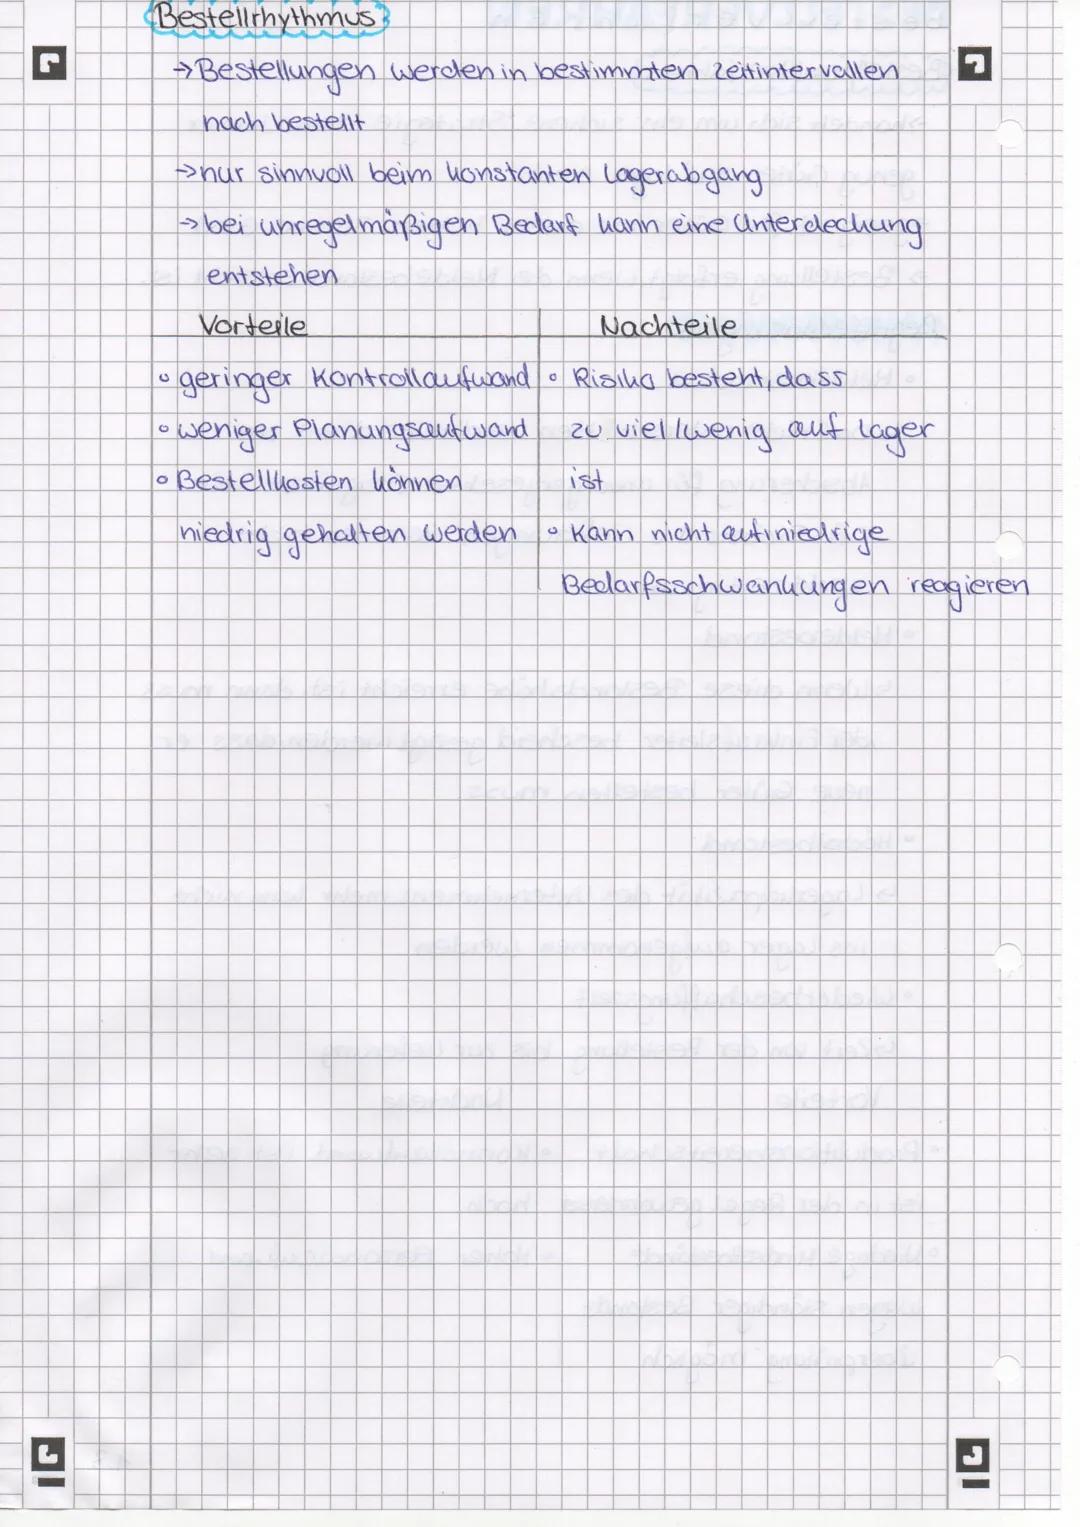 Bestellrhythmus
→ Bestellungen werden in bestimmten Zeitintervallen
nach bestellt
→ nur sinnvoll beim konstanten Lagerabgang
→ bei unregelmäßigen Bedarf kann eine Unterdeckung
entstehen
Vorteile
• geringer Kontrollaufwand
• weniger Planungsaufwand
• Bestellkosten können
niedrig gehalten werden
Nachteile
• Risiko besteht, dass
zu viel/wenig auf Lager
ist
• Kann nicht auf niedrige
Bedarfsschwankungen reagieren